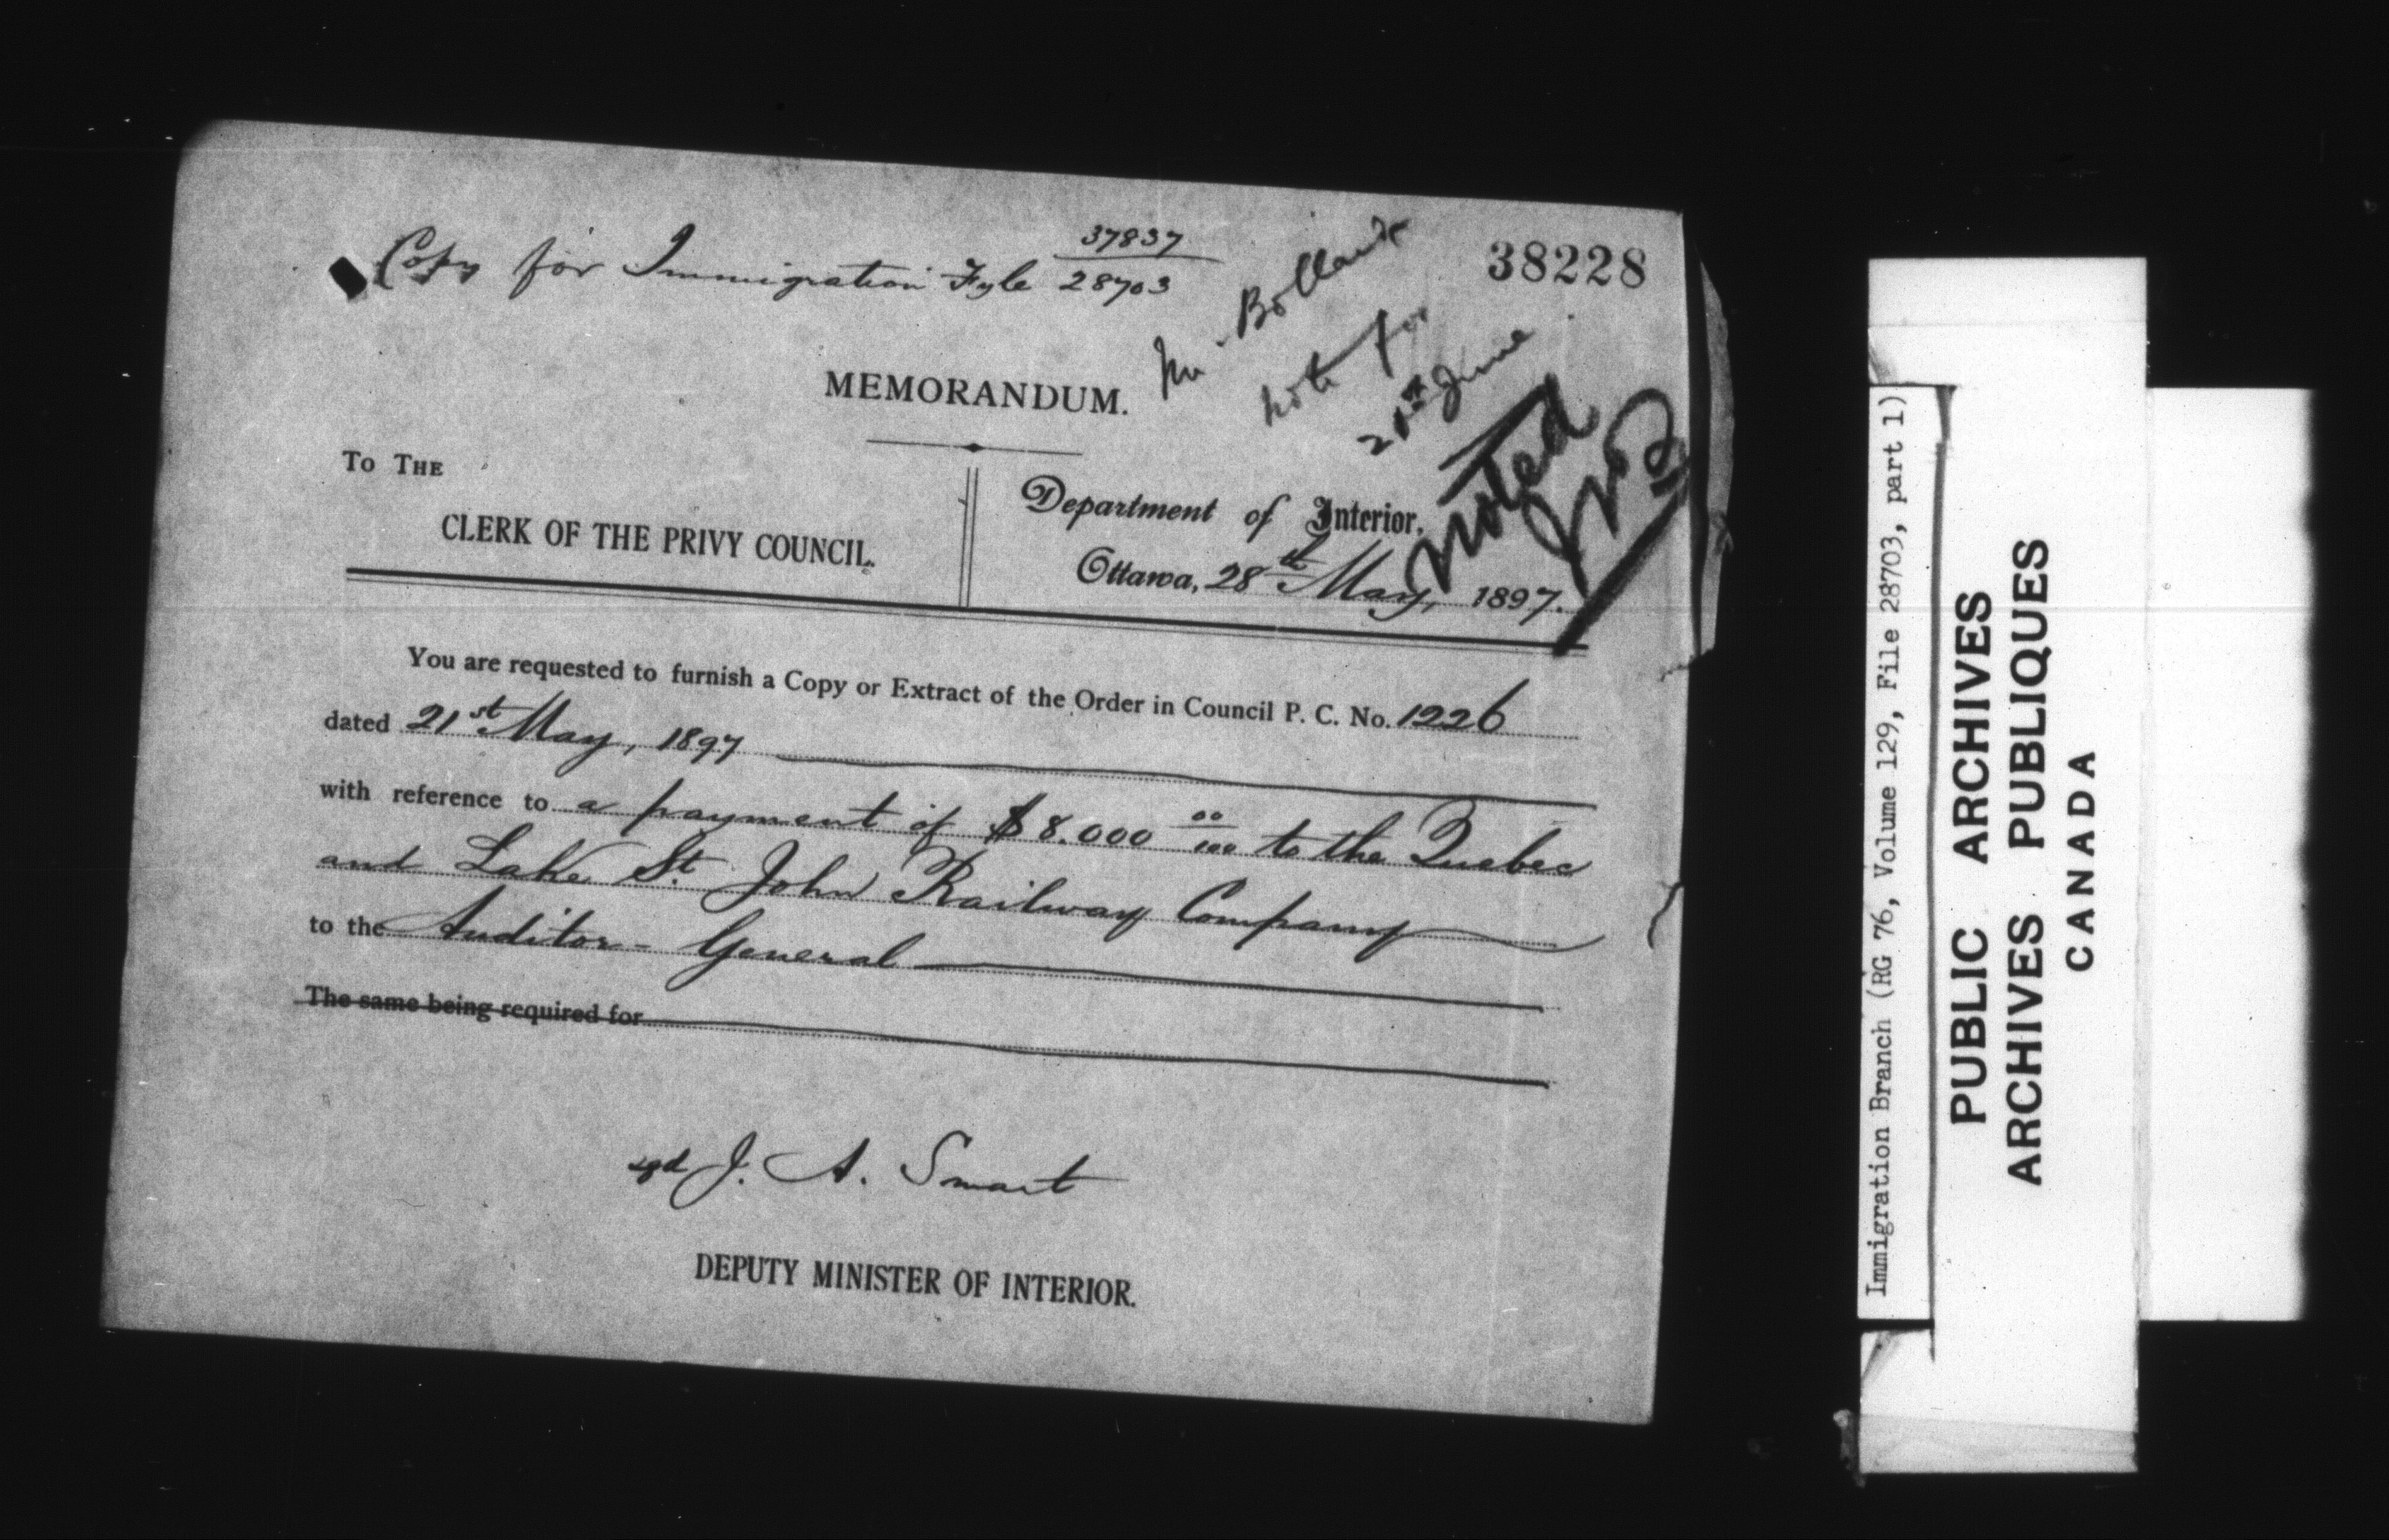 Copy for Immigration Fyle 37837
28703
38228
Mr. Bolland
note for
June
noted
MEMORANDUM.
To THE
CLERK OF THE PRIVY COUNCIL.
Department of Interior.
Ottawa, 28th May, 1897.
You are requested to furnish a Copy or Extract of the Order in Council P. C. No. 1226
dated 21st May, 1897
with reference to a payment of $8.000 00/100 to the Quebec
and Lake St. John Railway Company
to the Auditor-General
The same being required for
sgd J. A. Smart
DEPUTY MINISTER OF INTERIOR.
Immigration Branch (RG 76, Volume 129, File 28703, part 1)
PUBLIC ARCHIVES
ARCHIVES PUBLIQUES
CANADA